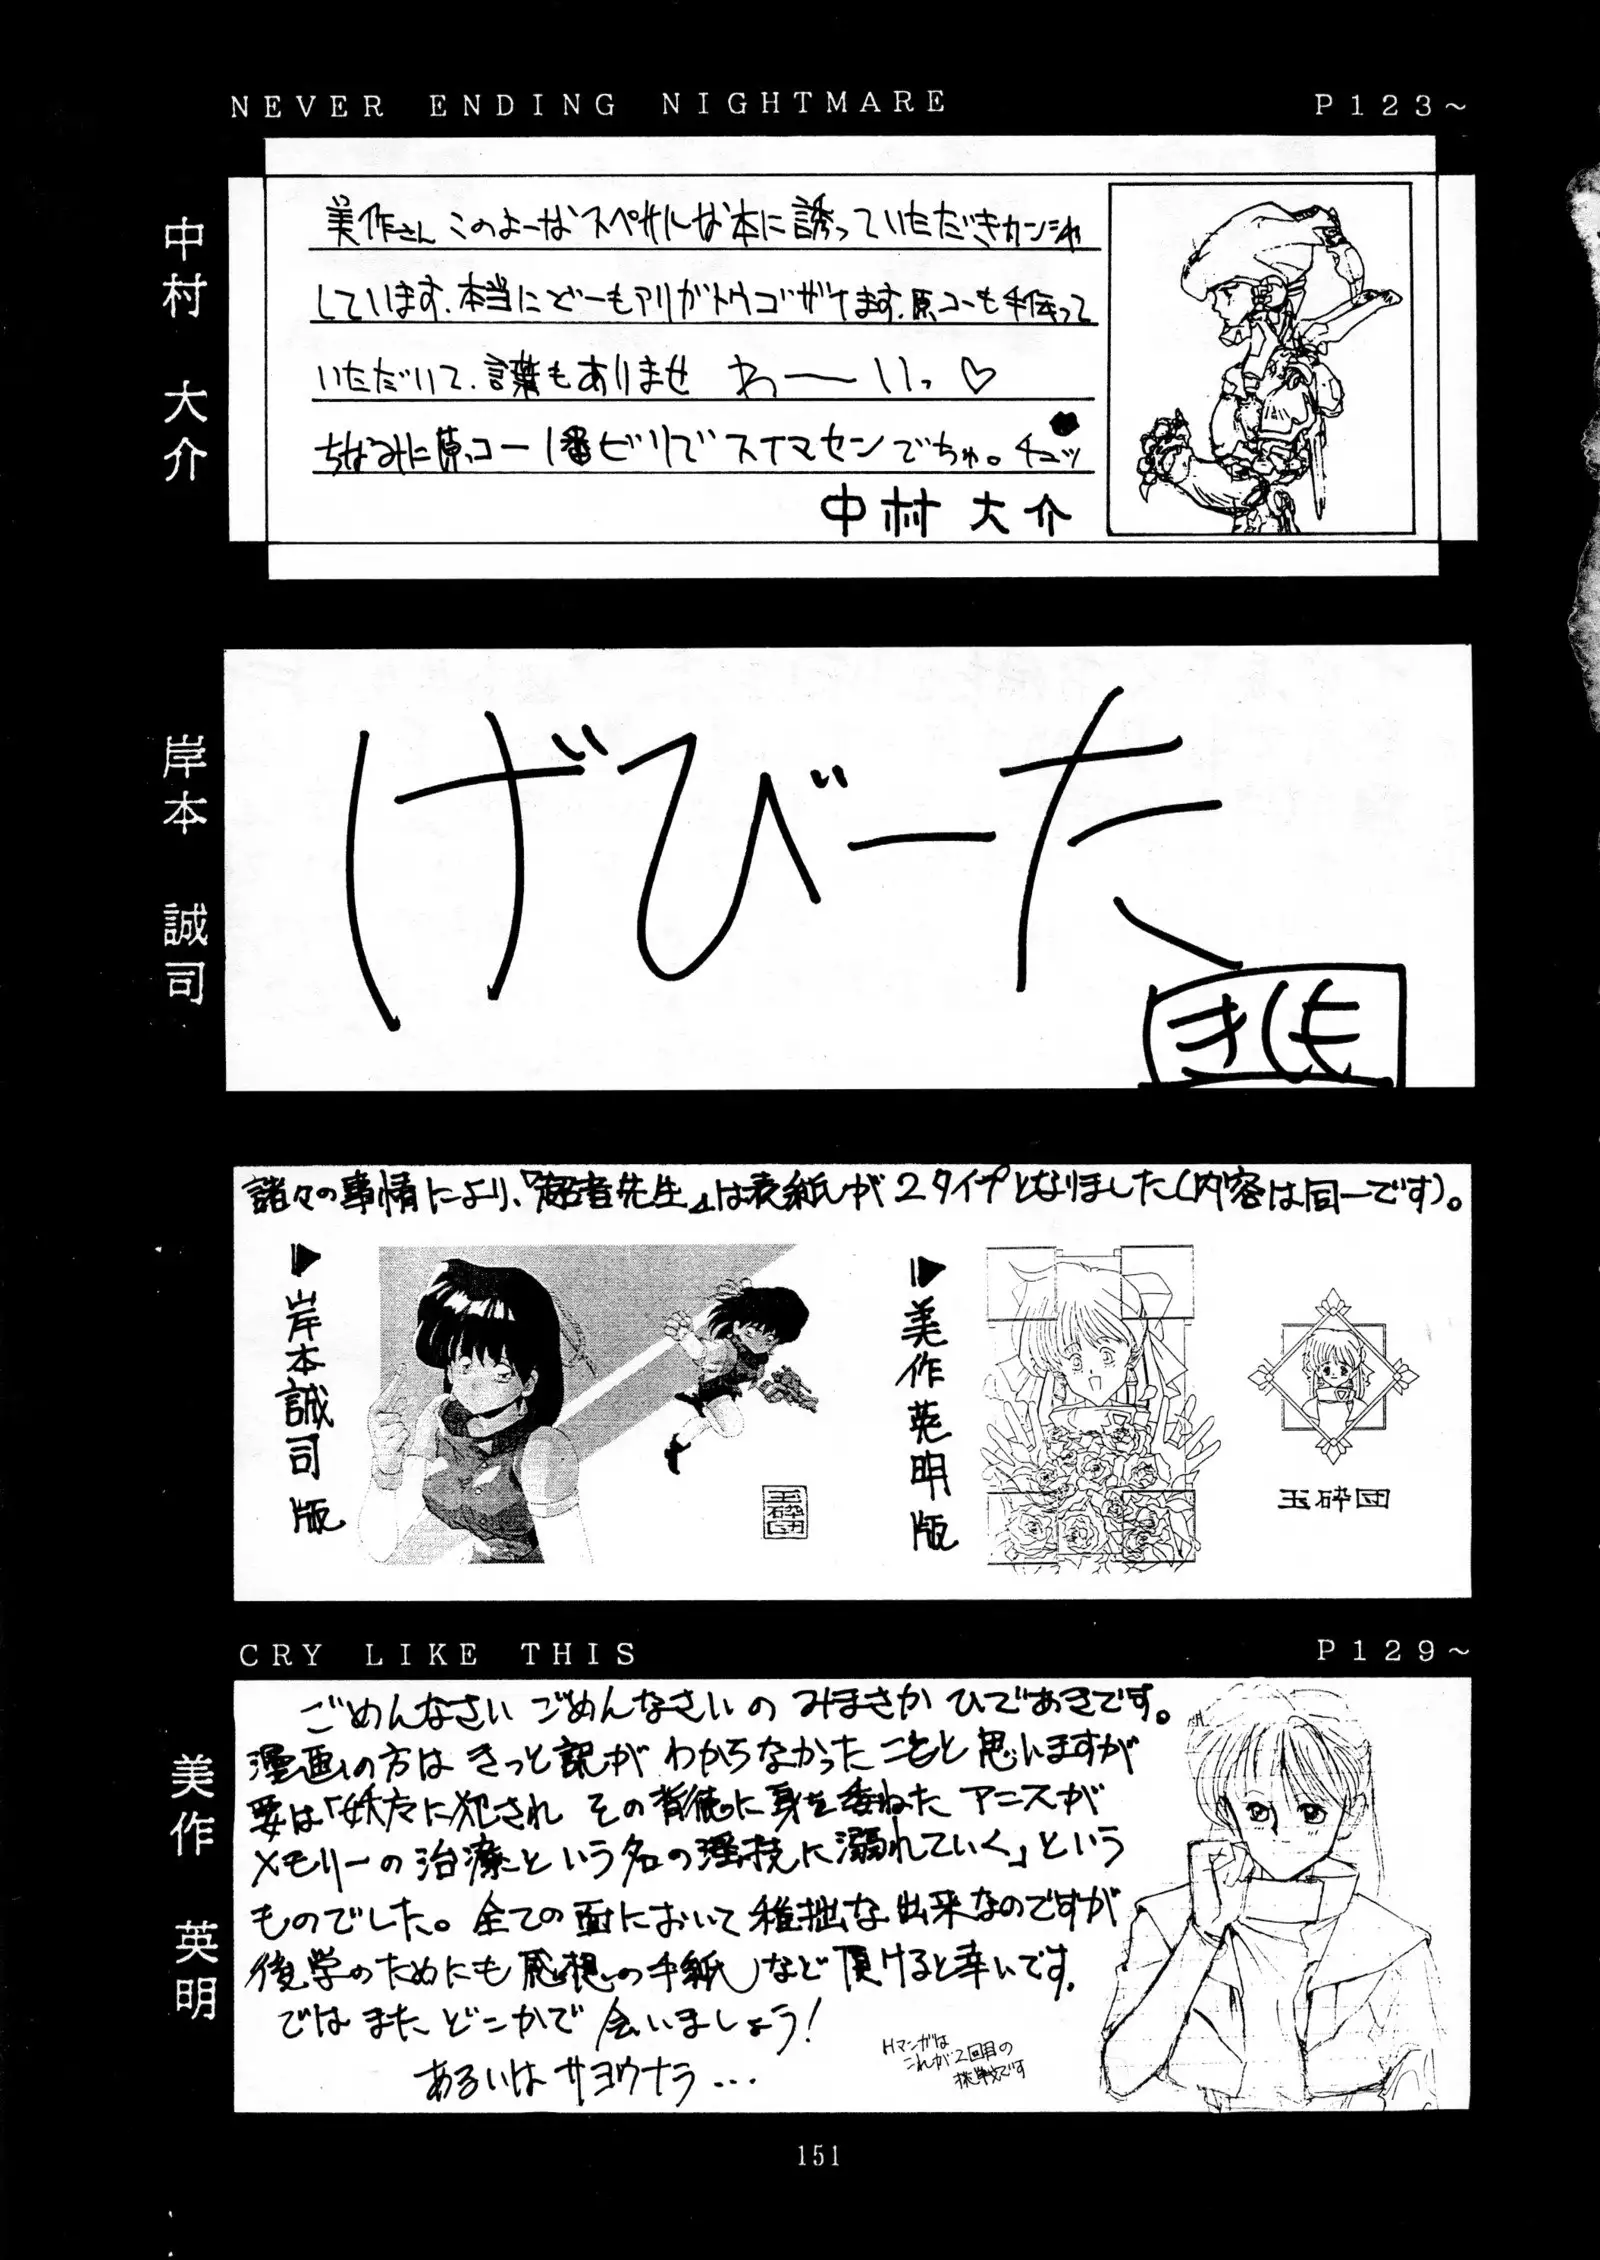 NEVER ENDING NIGHTMARE P123~
中村 大介
美作さんこのよーなスペサルな本に誘っていただきカンシャ
しています。本当にどーもアリガトウゴザイます。原コーも手伝って
いただいて、言葉もありませ わーーいっ♡
ちなみに原コー1番ビリでスイマセンでちゅ。チュッ
中村 大介
岸本 誠司
げびーた
きしも
諸々の事情により、『超者先生』は表紙が2タイプとなりました(内容は同一です)。
▶岸本誠司版
玉砕団
▶美作英明版
玉砕団
CRY LIKE THIS P129~
美作 英明
ごめんなさいごめんなさいの みまさか ひであきです。
漫画の方は きっと訳が わからなかったことと思いますが
要は「妖女に犯され その背徳に身を委ねた アニスが
メモリーの治療という名の淫技に溺れていく」という
ものでした。全ての面において稚拙な出来なのですが
後学のためにも 感想の手紙など頂けると幸いです。
ではまた どこかで 会いましょう!
あるいは サヨウナラ...
Hマンガは
これが2回目の
挑戦です
151